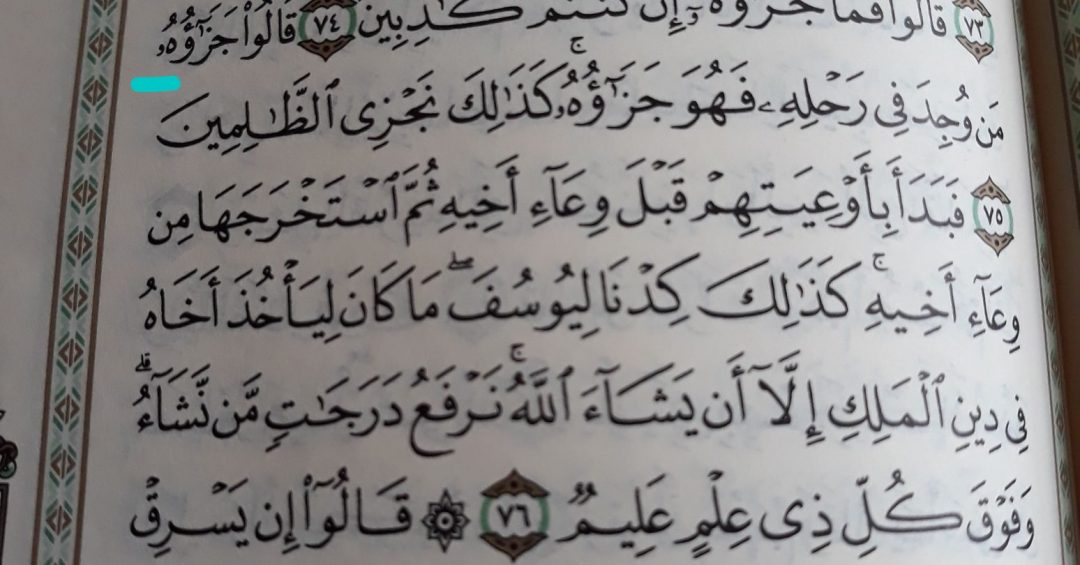 ٧٣ قَالُوا۟ فَمَا جَزَٰٓؤُهُۥٓ إِن كُنتُمْ كَـٰذِبِينَ ٧٤ قَالُوا۟ جَزَٰٓؤُهُۥ
مَن وُجِدَ فِى رَحْلِهِۦ فَهُوَ جَزَٰٓؤُهُۥ ۚ كَذَٰلِكَ نَجْزِى ٱلظَّـٰلِمِينَ
٧٥ فَبَدَأَ بِأَوْعِيَتِهِمْ قَبْلَ وِعَآءِ أَخِيهِ ثُمَّ ٱسْتَخْرَجَهَا مِن
وِعَآءِ أَخِيهِ ۚ كَذَٰلِكَ كِدْنَا لِيُوسُفَ ۖ مَا كَانَ لِيَأْخُذَ أَخَاهُ
فِى دِينِ ٱلْمَلِكِ إِلَّآ أَن يَشَآءَ ٱللَّهُ ۚ نَرْفَعُ دَرَجَـٰتٍ مَّن نَّشَآءُ ۗ
وَفَوْقَ كُلِّ ذِى عِلْمٍ عَلِيمٌ ٧٦ ۞ قَالُوٓا۟ إِن يَسْرِقْ